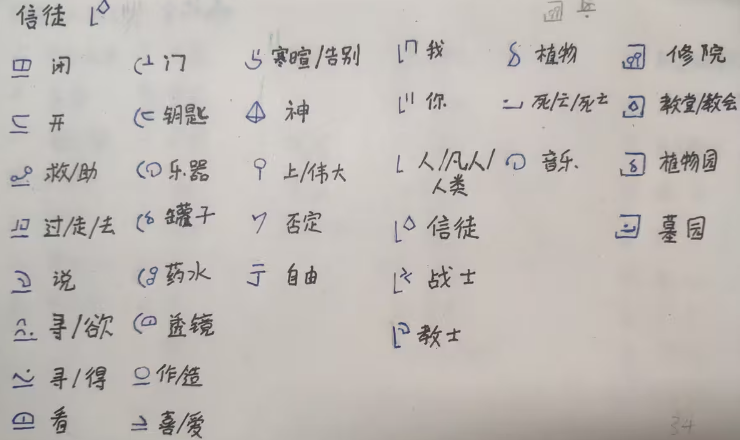 信徒
闭
开
救/助
过/走/去
说
寻/欲
寻/得
看
门
钥匙
乐器
罐子
药水
透镜
作/造
喜/爱
寒暄/告别
神
上/伟大
否定
自由
我
你
人/凡人/
人类
信徒
战士
教士
植物
死/亡/死亡
音乐
修院
教堂/教会
植物园
墓园
34